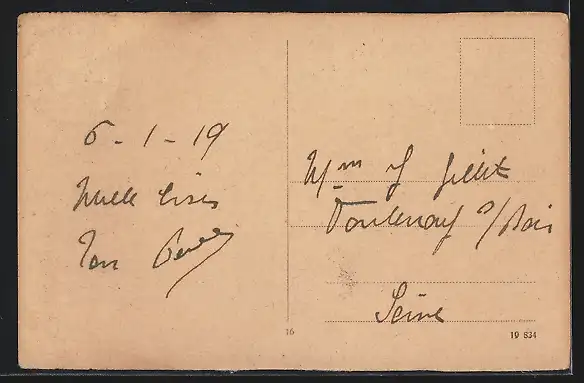 6-1-19
Mille bises
Ton
Mme J Gillet
Fontenay s/Bois
Seine
16
19 834